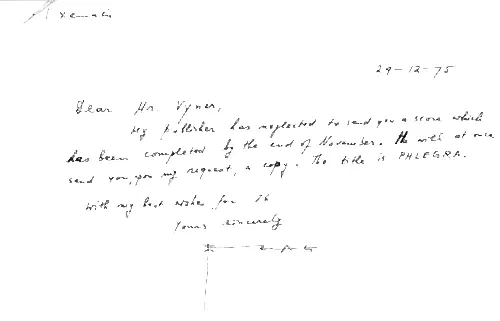 Xenakis
29-12-75
Dear Mr. Vyner,
My publisher has neglected to send you a score which
has been completed by the end of November. He will at once
send you, upon my request, a copy. The title is PHLEGRA.
With my best wishes for 76
Yours sincerely